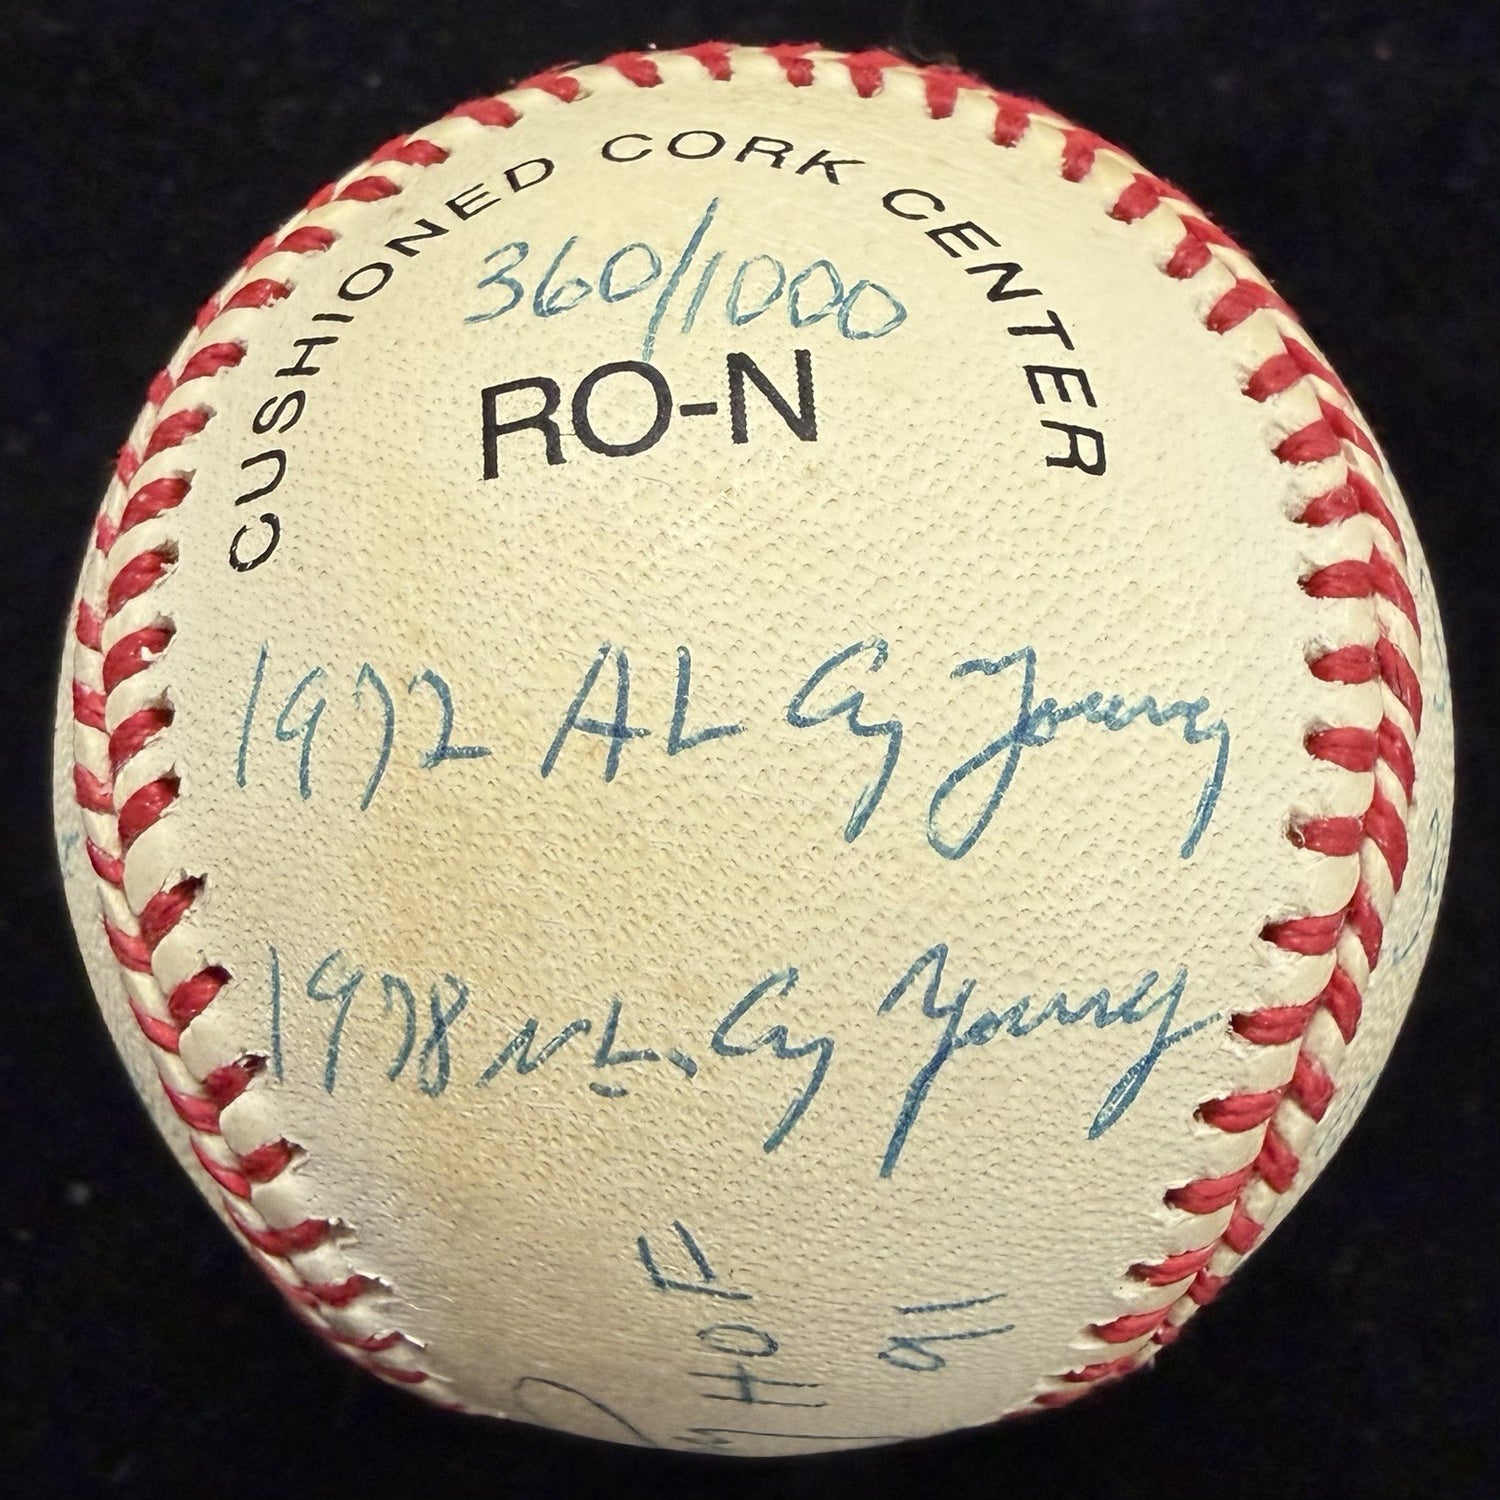 CUSHIONED CORK CENTER
360/1000
RO-N
1972 AL Cy Young
1978 NL. Cy Young
HOF
91